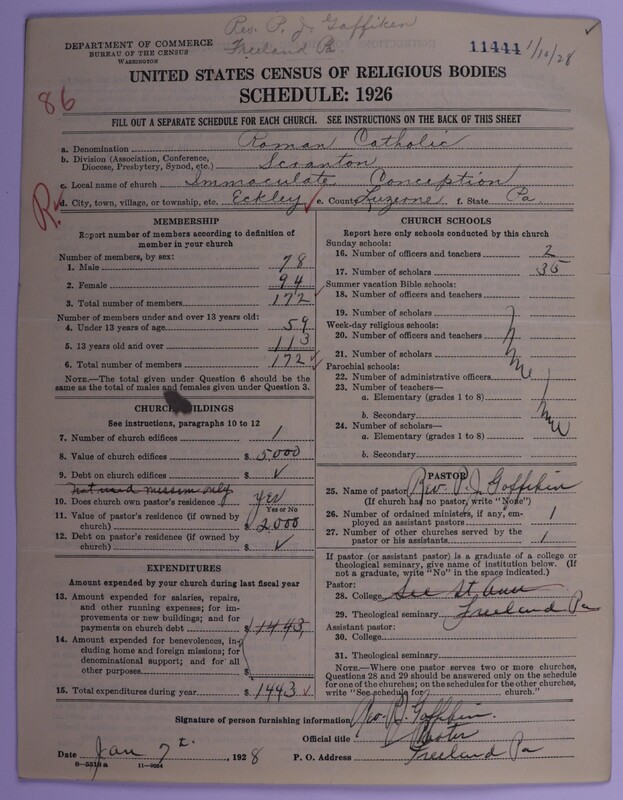 Rev. P. J. Gaffiken
Freeland Pa.
DEPARTMENT OF COMMERCE
BUREAU OF THE CENSUS
WASHINGTON
11444 1/10/28
UNITED STATES CENSUS OF RELIGIOUS BODIES
SCHEDULE: 1926
86
FILL OUT A SEPARATE SCHEDULE FOR EACH CHURCH. SEE INSTRUCTIONS ON THE BACK OF THIS SHEET
a. Denomination Roman Catholic
b. Division (Association, Conference, Diocese, Presbytery, Synod, etc.) Scranton
c. Local name of church Immaculate Conception
R. d. City, town, village, or township, etc. Eckley e. County Luzerne f. State Pa
MEMBERSHIP
Report number of members according to definition of
member in your church
Number of members, by sex:
1. Male 78
2. Female 94
3. Total number of members 172
Number of members under and over 13 years old:
4. Under 13 years of age 59
5. 13 years old and over 113
6. Total number of members 172
NOTE.—The total given under Question 6 should be
same as the total of males and females given under Question 3.
CHURCH BUILDINGS
See instructions, paragraphs 10 to 12
7. Number of church edifices 1
8. Value of church edifices $ 5000
9. Debt on church edifices $ ✓
10. Does church own pastor's residence yes
Yes or No
11. Value of pastor's residence (if owned by
church) $ 2000
12. Debt on pastor's residence (if owned by
church) $ ✓
EXPENDITURES
Amount expended by your church during last fiscal year
13. Amount expended for salaries, repairs,
and other running expenses; for im-
provements or new buildings; and for
payments on church debt $ 1443
14. Amount expended for benevolences, in-
cluding home and foreign missions; for
denominational support; and for all
other purposes $
15. Total expenditures during year $ 1443
CHURCH SCHOOLS
Report here only schools conducted by this church
Sunday schools:
16. Number of officers and teachers 2
17. Number of scholars 35
Summer vacation Bible schools:
18. Number of officers and teachers
19. Number of scholars
Week-day religious schools:
20. Number of officers and teachers
21. Number of scholars
Parochial schools:
22. Number of administrative officers
23. Number of teachers—
a. Elementary (grades 1 to 8)
b. Secondary
24. Number of scholars—
a. Elementary (grades 1 to 8)
b. Secondary
PASTOR
25. Name of pastor Rev. P. J. Gaffikin
(If church has no pastor, write "None")
26. Number of ordained ministers, if any, em-
ployed as assistant pastors 1
27. Number of other churches served by the
pastor or his assistants 1
If pastor (or assistant pastor) is a graduate of a college or
theological seminary, give name of institution below. (If
not a graduate, write "No" in the space indicated.)
Pastor:
28. College See St. Ann
29. Theological seminary Freeland Pa
Assistant pastor:
30. College
31. Theological seminary
NOTE.—Where one pastor serves two or more churches,
Questions 28 and 29 should be answered only on the schedule
for one of the churches; on the schedules for the other churches,
write "See schedule for church."
Signature of person furnishing information Rev. P. J. Gaffikin.
Official title Pastor
Date Jan 7th. 1928 P. O. Address Freeland Pa
8—5518a 11—9054